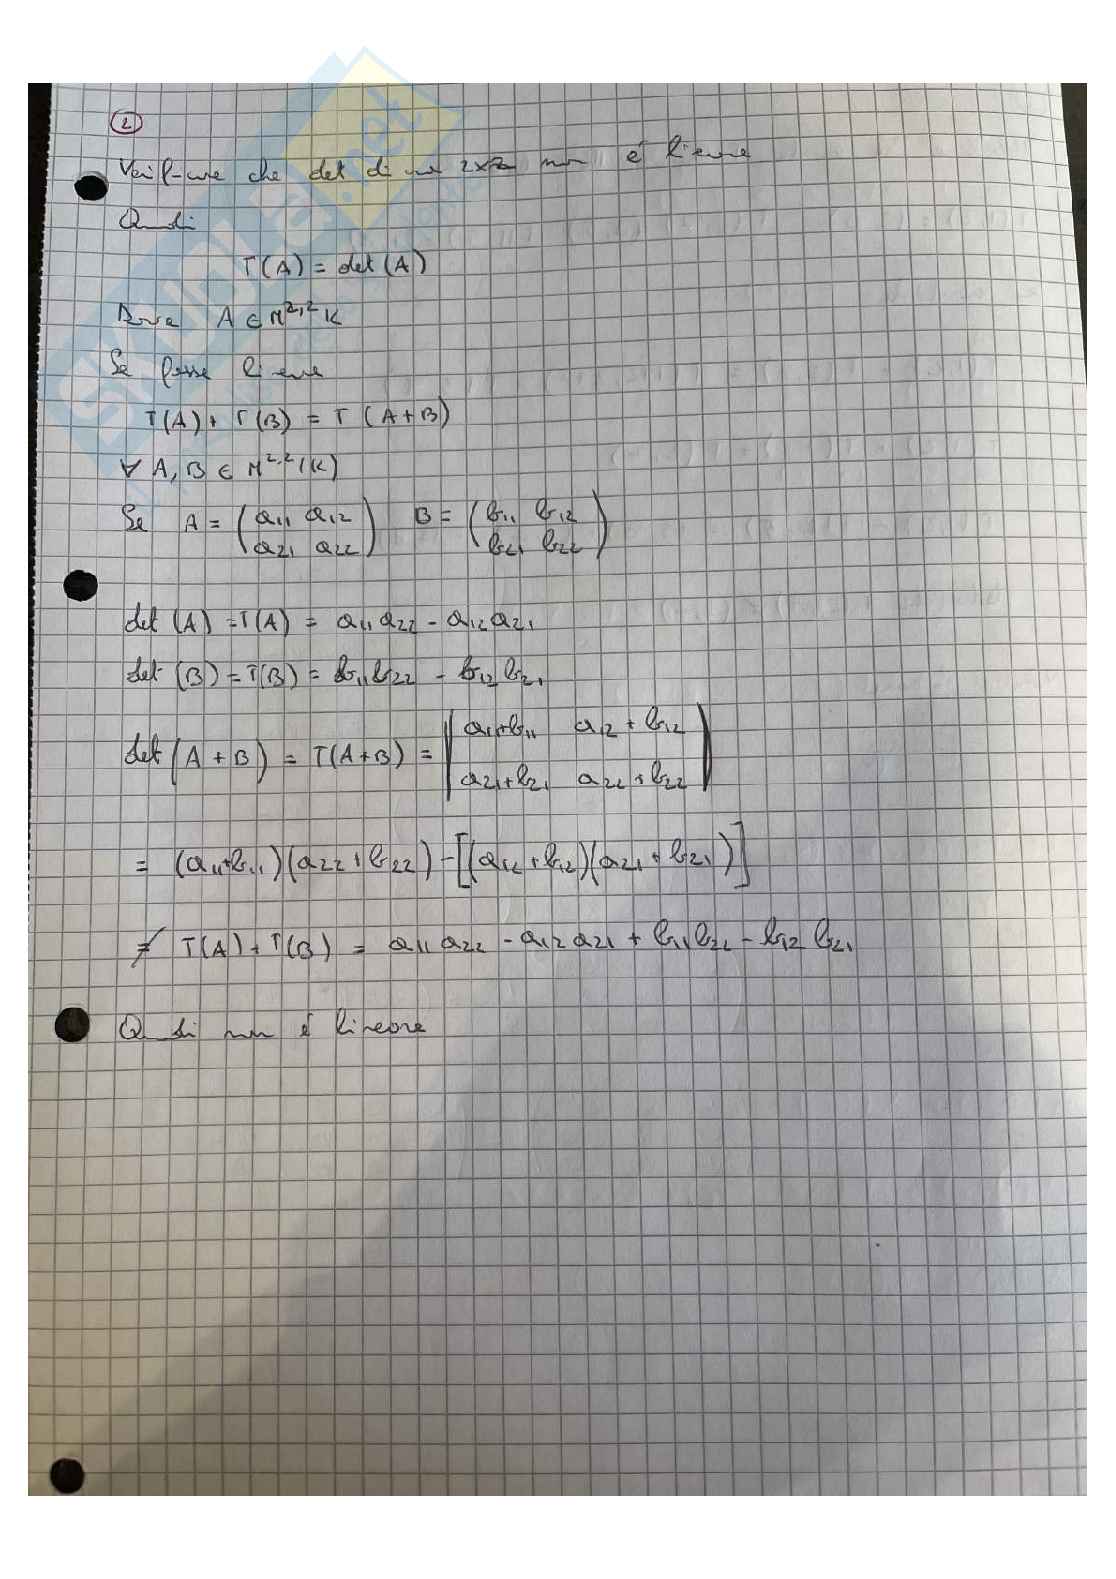 2
Verificare che det di una 2x2 non é lineare
Quindi
T(A) = det(A)
Dove A ∈ M^{2,2} K
Se fosse lineare
T(A) + T(B) = T (A+B)
∀ A, B ∈ M^{2,2}(K)
Se A = (a₁₁ a₁₂ B = (b₁₁ b₁₂
a₂₁ a₂₂) b₂₁ b₂₂)
det (A) = T(A) = a₁₁ a₂₂ - a₁₂ a₂₁
det (B) = T(B) = b₁₁ b₂₂ - b₁₂ b₂₁
det (A + B) = T(A+B) = |a₁₁+b₁₁ a₁₂ + b₁₂
a₂₁+b₂₁ a₂₂ + b₂₂|
= (a₁₁+b₁₁)(a₂₂+b₂₂) - [(a₁₂+b₁₂)(a₂₁+b₂₁)]
≠ T(A) + T(B) = a₁₁ a₂₂ - a₁₂ a₂₁ + b₁₁ b₂₂ - b₁₂ b₂₁
Quindi non é lineare
SKUOLA.net